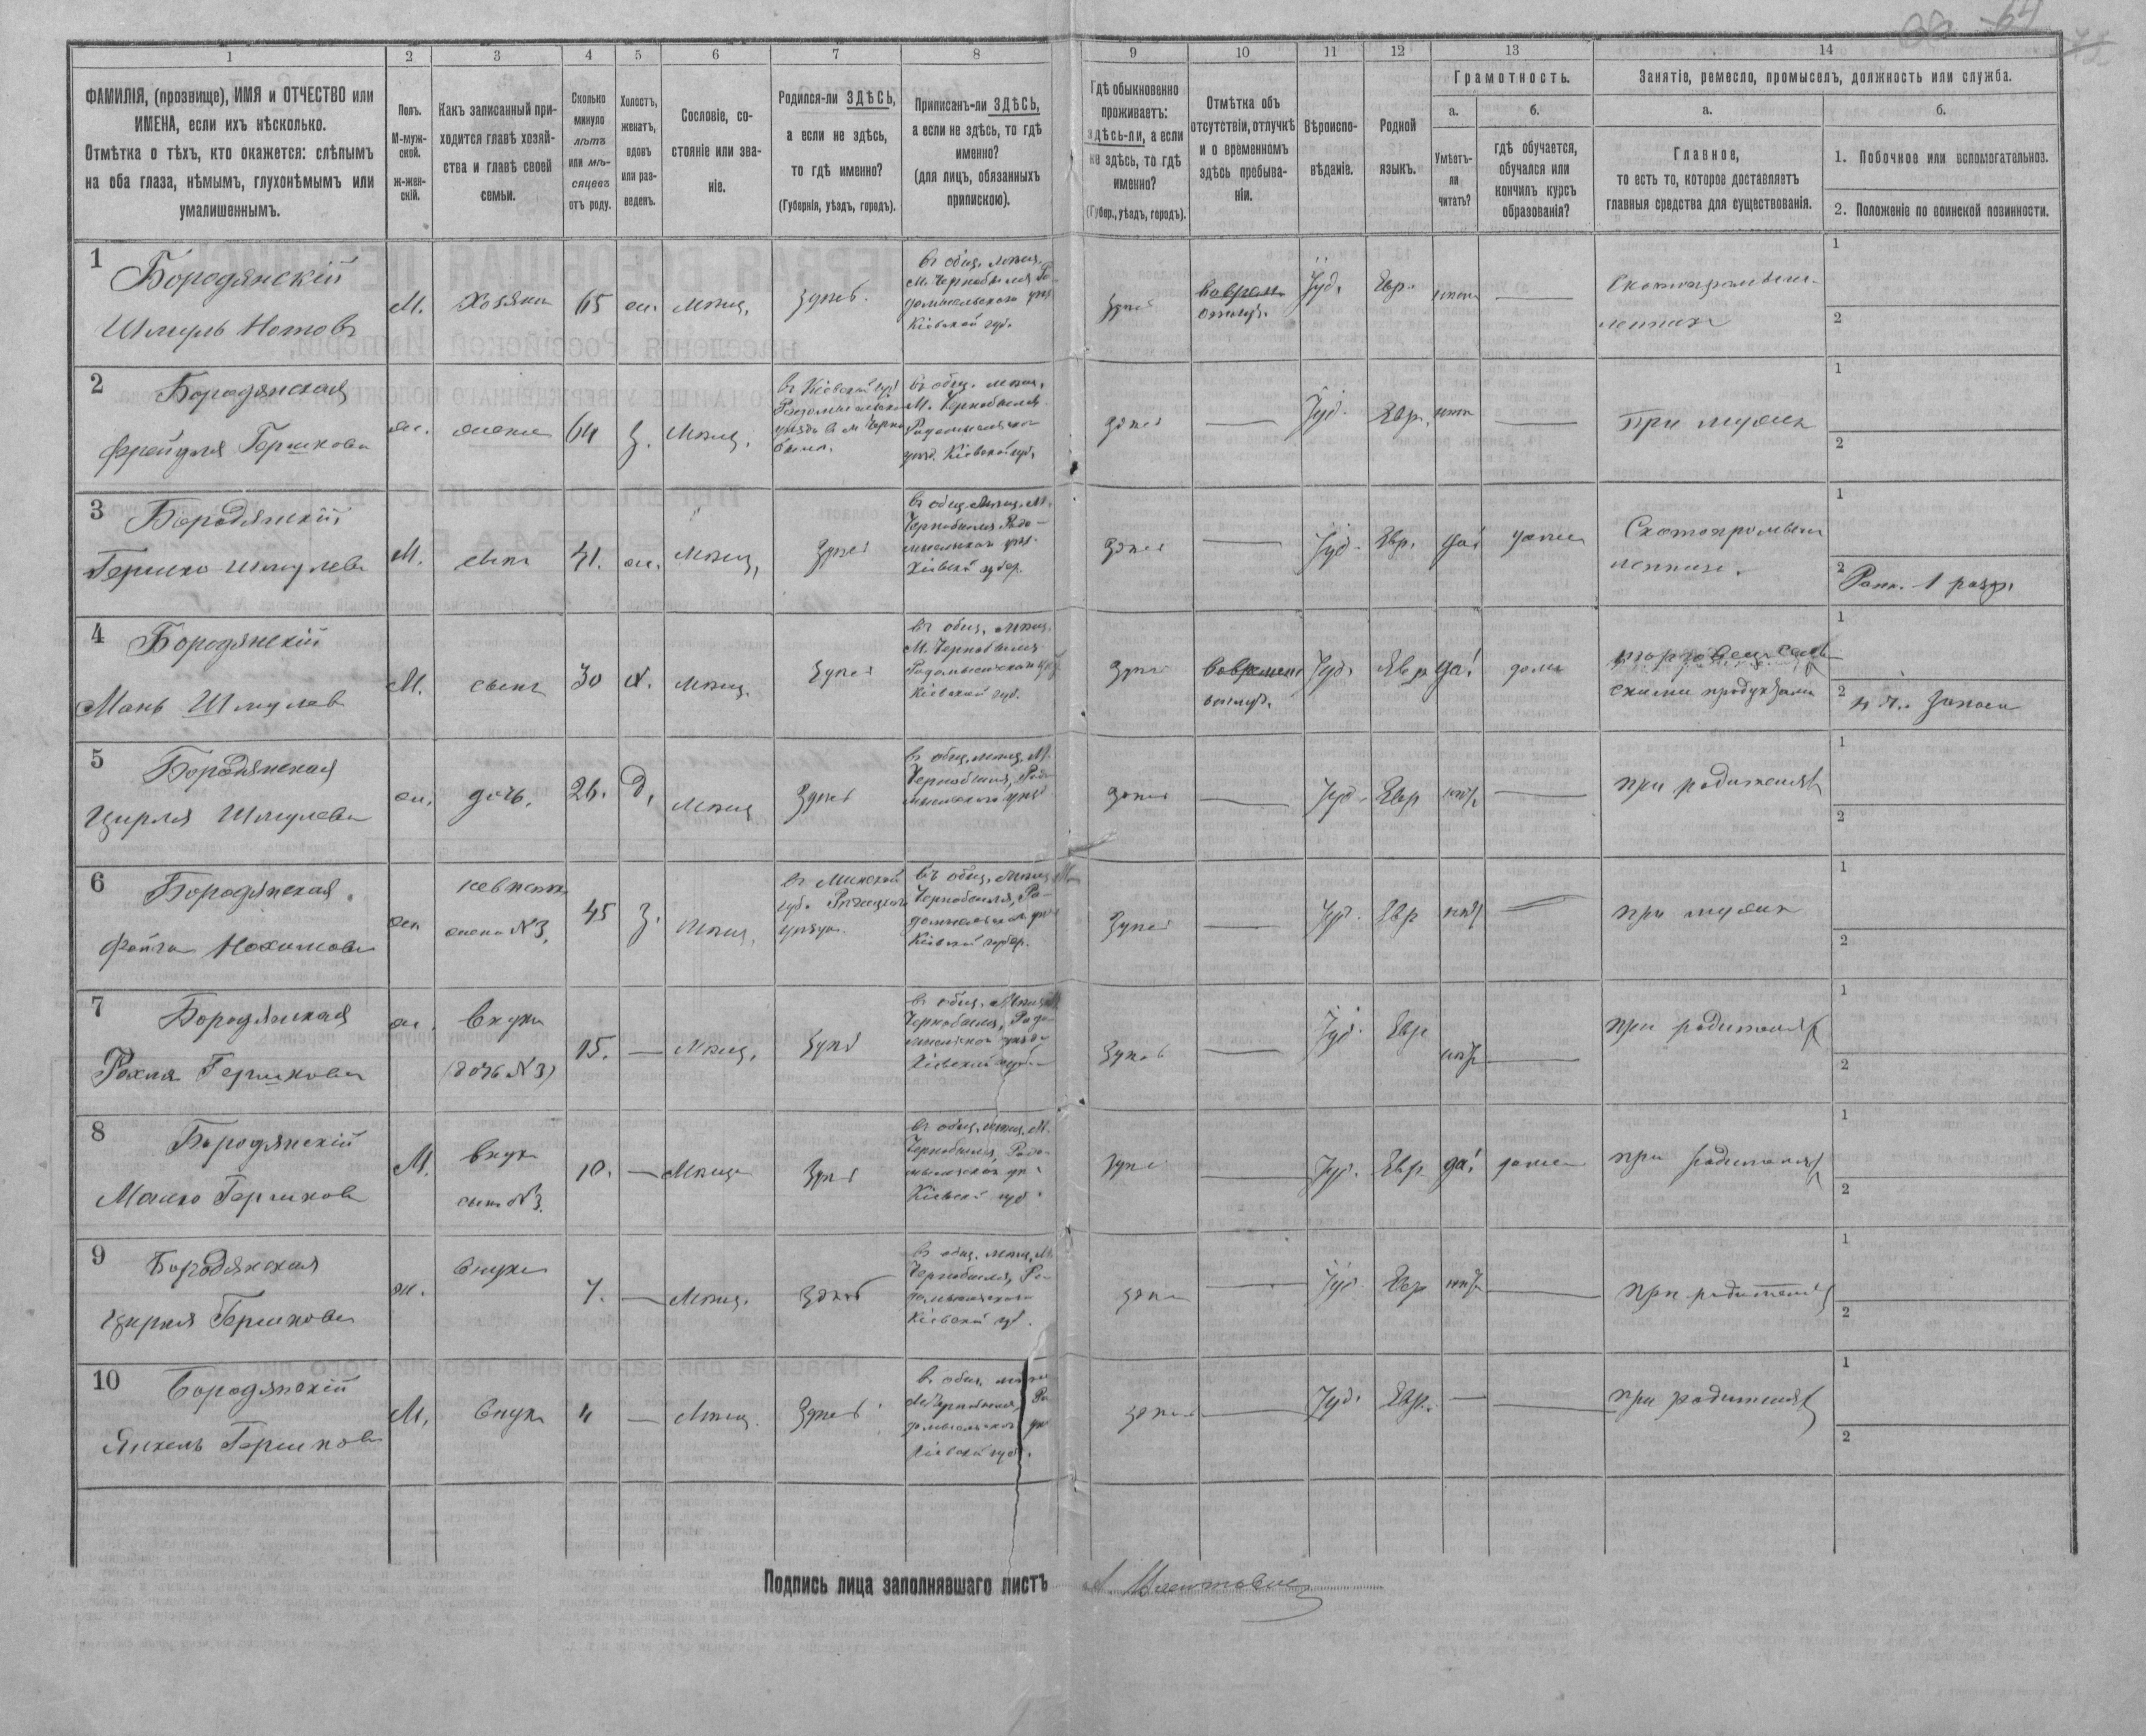 64
1
2
3
4
5
6
7
8
9
10
11
12
13
14
ФАМИЛІЯ, (прозвище), ИМЯ и ОТЧЕСТВО или
ИМЕНА, если ихъ нѣсколько.
Отмѣтка о тѣхъ, кто окажется: слѣпымъ
на оба глаза, нѣмымъ, глухонѣмымъ или
умалишеннымъ.
Полъ.
М-муж-
ской.
ж-жен-
скій.
Какъ записанный при-
ходится главѣ хозяй-
ства и главѣ своей
семьи.
Сколько
минуло
лѣтъ
или мѣ-
сяцевъ
отъ роду.
Холостъ,
женатъ,
вдовъ
или раз-
веденъ.
Сословіе, со-
стояніе или зва-
ніе.
Родился-ли ЗДѢСЬ,
а если не здѣсь,
то гдѣ именно?
(Губернія, уѣздъ, городъ).
Приписанъ-ли ЗДѢСЬ,
а если не здѣсь, то гдѣ
именно?
(для лицъ, обязанныхъ
припискою).
Гдѣ обыкновенно
проживаетъ:
здѣсь-ли, а если
не здѣсь, то гдѣ
именно?
(Губер., уѣздъ, городъ).
Отмѣтка объ
отсутствіи, отлучкѣ
и о временномъ
здѣсь пребыва-
ніи.
Вѣроиспо-
вѣданіе.
Родной
языкъ.
Грамотность.
а.
Умѣетъ-
ли
читать?
б.
гдѣ обучается,
обучался или
кончилъ курсъ
образованія?
Занятіе, ремесло, промыселъ, должность или служба.
а.
Главное,
то есть то, которое доставляетъ
главныя средства для существованія.
б.
1. Побочное или вспомогательное.
2. Положеніе по воинской повинности.
1 Бородянскій
Шмуль Нотовъ
М.
Хозяинъ
65
ж.
Мѣщ.
здѣсь.
въ общ. мѣщ.
М. Чернобыля Ра-
домысльского уѣз.
Кіевской губ.
здѣсь
Іуд.
Евр.
нѣтъ
Скотопромыш-
ленникъ
1
2
2 Бородянская
Фрейдля Гершкова
ж.
жена
64
З.
Мѣщ.
въ Кіевской губ.
въ общ. мѣщ.
М. Чернобыля
Радомысльского
уѣз. Кіевской губ.
здѣсь
Іуд.
Евр.
нѣтъ
При мужѣ
1
2
3 Бородянскій
Гершко Шмулевъ
М.
сынъ
41.
ж.
Мѣщ.
здѣсь
въ общ. мѣщ. М.
Чернобыля Радо-
мысльского уѣз.
Кіевской губер.
здѣсь
Іуд.
Евр.
да!
дома
Скотопромыш
ленникъ.
1
2 Ратн. 1 разр.
4 Бородянскій
Мань Шмулев
М.
сынъ
30
х.
мѣщ.
здѣсь
въ общ. мѣщ.
М. Чернобыля
Радомысльского уѣз.
Кіевской губ.
здѣсь
Іуд.
Евр
да!
дома
скими продуктами
1
2
5 Бородянская
Цирля Шмулева
ж.
дочь.
26.
Д.
Мѣщ
здѣсь
въ общ. мѣщ. М.
Чернобыля, Радо-
мысльского уѣз.
здѣсь
Іуд.
Евр
нѣтъ
при родителяхъ
1
2
6 Бородянская.
Фейга Нохимова
жен
невѣстка
жена №3.
45
З.
Мѣщ.
въ Минской
губ. Рѣчицкого
уѣзда.
въ общ. мѣщ. М
Чернобыля, Ра-
домысльского уѣз
Кіевской губер.
здѣсь
Іуд.
Евр
нѣтъ
при мужѣ
1
2
7 Бородянская
Рохля Гершкова
ж.
внука
(дочь №3)
15.
мѣщ.
здѣсь
въ общ. Мѣщ. М
Чернобыля, Радо-
мысльского уѣзда
Кіевской губ.
здѣсь
Іуд.
Евр
нѣтъ
при родителяхъ
1
2
8 Бородянскій
Мошко Гершков
М.
внук
сынъ №3.
10.
Мѣщ.
здѣсь
въ общ. мѣщ. М.
Чернобыля, Радо-
мысльского уѣ
Кіевской губ.
здѣсь
Іуд.
Евр
да!
дома
при родителяхъ
1
2
9 Бородянская
Цирля Гершкова
ж.
внука
7.
Мѣщ.
здѣсь
въ общ. мѣщ. М.
Чернобыля, Ра-
домысльского
Кіевской губ.
здѣсь
Іуд.
Евр
нѣтъ
при родителяхъ
1
2
10 Бородянскій
Янкель Гершков
М.
внук
4
Мѣщ.
здѣсь
въ общ. мѣщ
М. Чернобыля, Ра
домысльского уѣ
Кіевской губ.
здѣсь
Іуд.
Евр.
при родителяхъ
1
2
Подпись лица заполнявшаго листъ